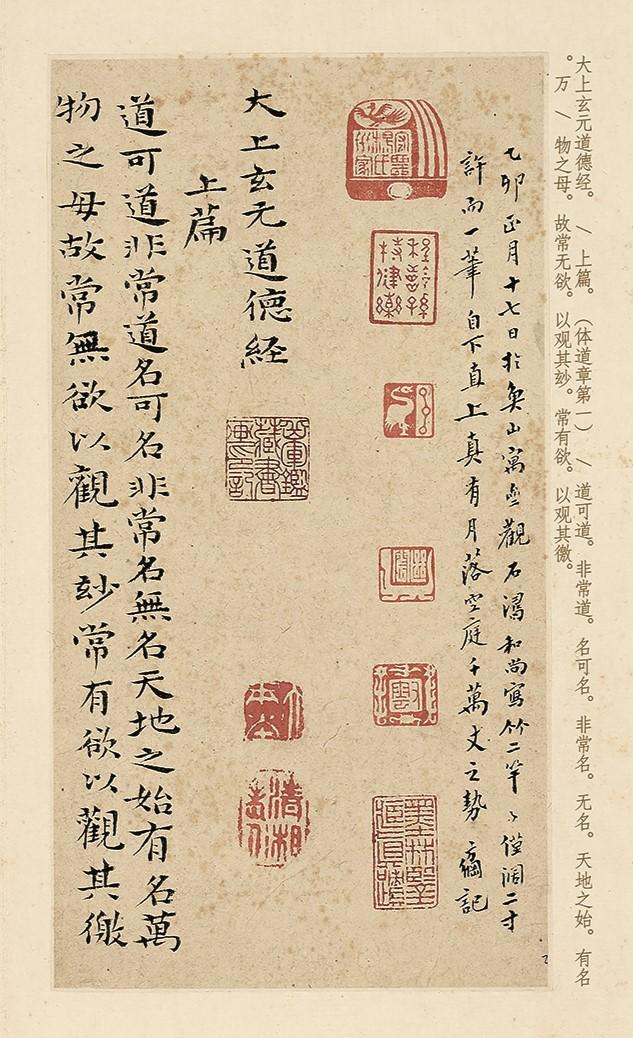 大上玄元道德经。／上篇。（体道章第一）／道可道。非常道。名可名。非常名。无名。天地之始。有名
。万／物之母。故常无欲。以观其玅。常有欲。以观其徼。
乙卯正月十七日於山寓觀石濤和尚寫竹二竿僅闊二寸
許而一筆自下直上真有月落空庭千萬丈之勢記
大上玄元道德経
上篇
道可道非常道名可名非常名無名天地之始有名萬
物之母故常無欲以觀其玅常有欲以觀其徼